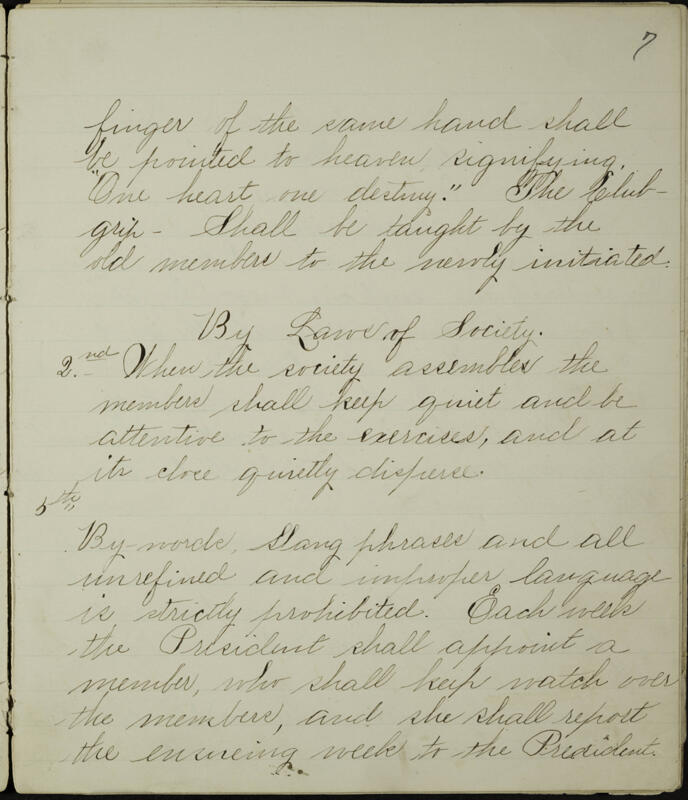 7
finger of the same hand shall
be pointed to heaven, signifying,
"One heart one destiny." The Club-
grip - Shall be taught by the
old members to the newly initiated.
By Laws of Society.
2.nd When the society assembles the
members shall keep quiet and be
attentive to the exercises, and at
its close quietly disperse.
5th,,
By-words, Slang phrases and all
unrefined and improper language
is strictly prohibited. Each week
the President shall appoint a
member, who shall keep watch over
the members, and she shall report
the ensueing week to the President.